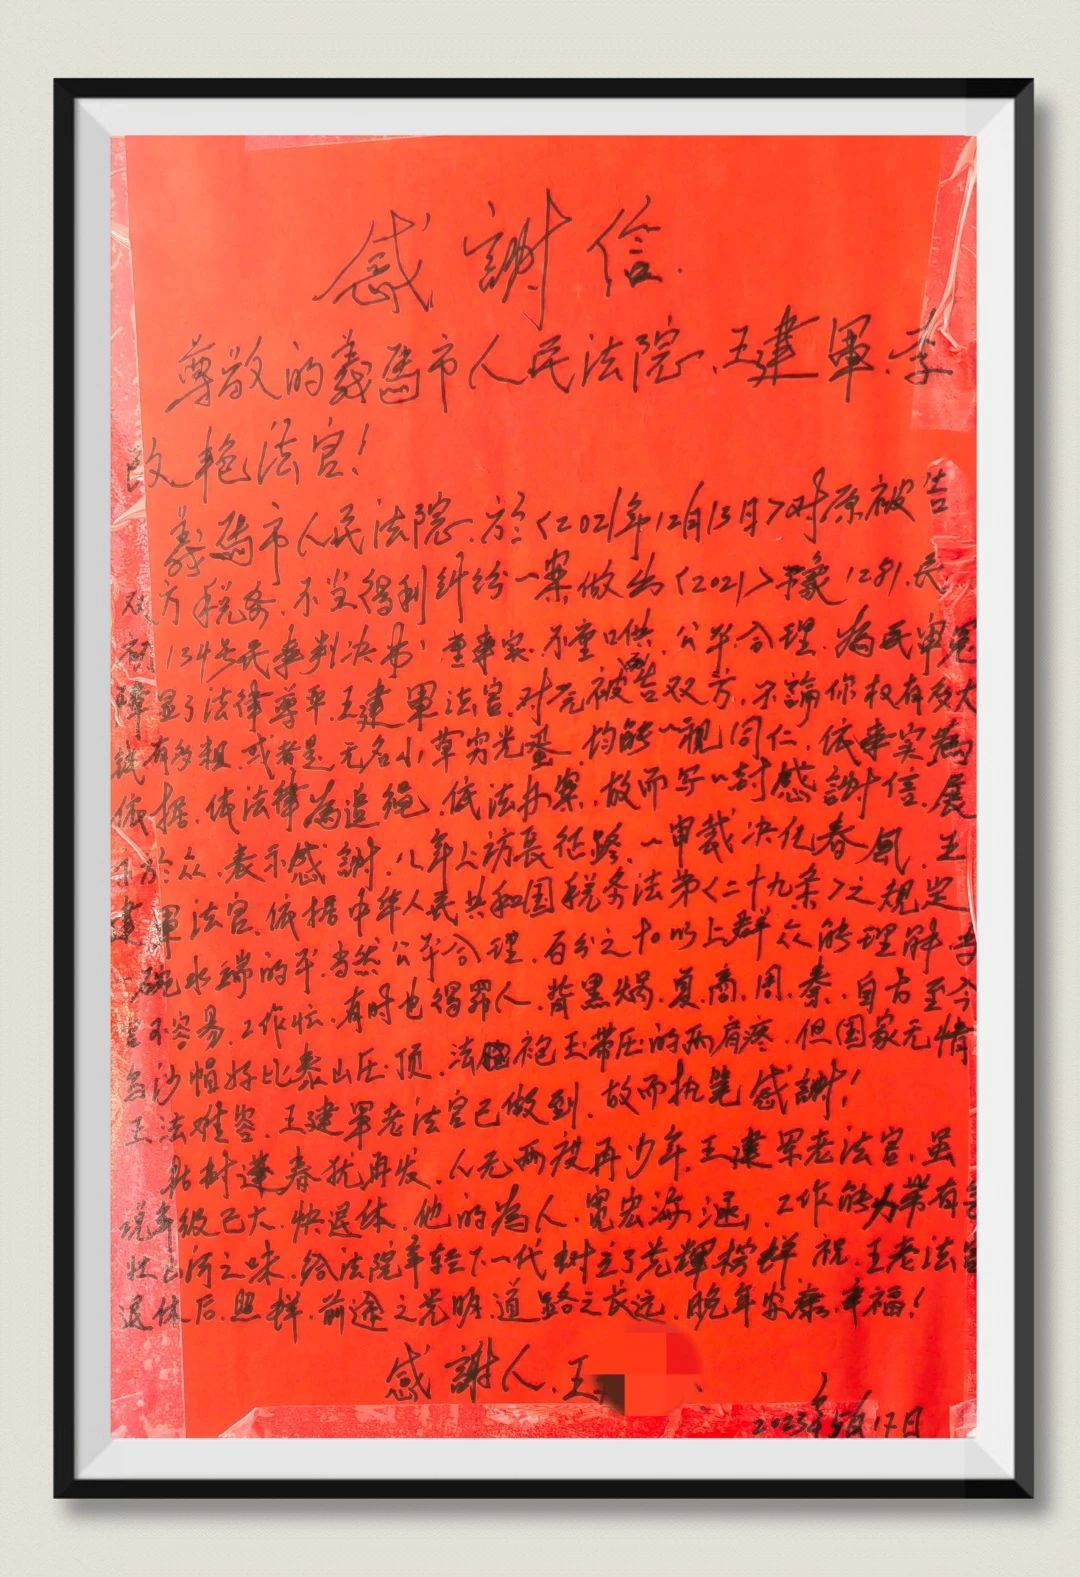 感謝信
尊敬的義馬市人民法院、王建軍、李
改艳法官！
義馬市人民法院、於〈2021年12月13日〉对原被告
双方税务、不当得利纠纷一案做出〈2021〉豫1281、民
初134号民事判决书、重事实、不重口供、公平合理、為民申冤
障显了法律尊严、王建軍法官、对元被告双方、不論你权有多大
錢有多粗、或者是无名小草穷光蛋、均能一視同仁、依事实為
依据、依法律為准繩、依法办案、故而写一封感謝信、展
示於众、表示感謝、八年上訪長征路、一串裁决化春風、王
建軍法官、依据中华人民共和国税务法第〈二十九条〉之規定
一碗水端的平、当然公平合理、百分之十以上群众能理解、当
官不容易、工作忙、有时也得罪人、背黑焗、夏、商、周、秦、自古至今
乌沙帽好比泰山压顶、法袍玉带压的两肩疼、但国家无情
王法难容、王建軍老法官已做到、故而执笔感謝！
枯树逢春犹再发、人无两度再少年、王建軍老法官、虽
説年級已大、快退休、他的為人、寬宏海涵、工作能力带有
壮山河之味、給法院年轻下一代树立了光輝榜样、祝、王老法官
退休后、照样、前途之光明、道路之长远、晚年安康、幸福！
感謝人、王
2023年5月17日